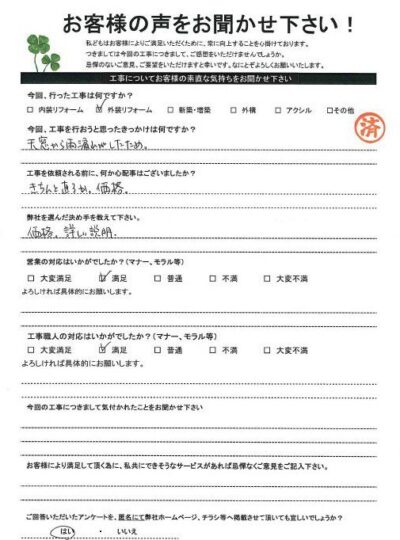 お客様の声をお聞かせ下さい！
私どもはお客様によりご満足いただくために、常に向上することを心掛けております。
つきましては今回の工事につきまして、ご感想をいただけませんでしょうか。
忌憚のないご意見、ご要望をいただけますと幸いです。なにとぞよろしくお願いいたします。
工事についてお客様の素直な気持ちをお聞かせ下さい
今回、行った工事は何ですか？
□ 内装リフォーム ☑ 外装リフォーム □ 新築・増築 □ 外構 □ アクシル □その他
済
今回、工事を行おうと思ったきっかけは何ですか？
天窓から雨漏れがしたため。
工事を依頼される前に、何か心配事はございましたか？
きちんと直るか、価格。
弊社を選んだ決め手を教えて下さい。
価格、詳しい説明。
営業の対応はいかがでしたか？（マナー、モラル等）
□ 大変満足 ☑ 満足 □ 普通 □ 不満 □ 大変不満
よろしければ具体的にお願いします。
工事職人の対応はいかがでしたか？（マナー、モラル等）
□ 大変満足 ☑ 満足 □ 普通 □ 不満 □ 大変不満
よろしければ具体的にお願いします。
今回の工事につきまして気付かれたことをお聞かせ下さい
お客様により満足して頂く為に、私共にできそうなサービスがあれば忌憚なくご意見をご記入下さい。
ご回答いただいたアンケートを、匿名にて弊社ホームページ、チラシ等へ掲載させて頂いても宜しいでしょうか？
はい ・ いいえ